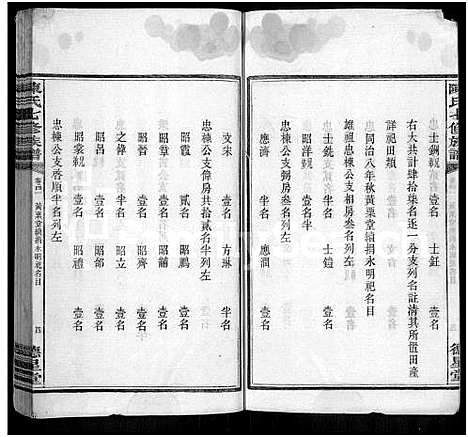 陳氏七修族譜
德星堂
士釗祝 壹名 士鈺 壹名
右大共計肆拾柒名逐一分支列名註清其所置田產
詳祀田類
同治八年秋黃粟堂續捐永明祀名目
雄祖忠棟公支相房叁名列左
士鈴 壹名 士鎧 壹名
昭洋祝 壹名
忠棟公支弼房叁名列左
應 壹名 應澗 壹名
文宋 壹名 方琳 半名
忠棟公支偉房共拾貳名半列左
昭晉 壹名 昭鵬 壹名
昭棠 貳名 昭鸞 壹名
昭祝 壹名 昭齊 壹名
之偉 壹名 昭立 壹名
昭昌 壹名 昭節 壹名
昭棠祝 壹名 昭禮 壹名
忠棟公支啓順半名列左
陳氏七修族譜
黃粟堂續捐永明祀名目
四
德星堂